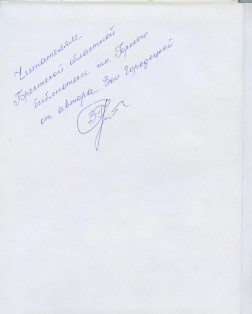 Читателям
Брестской областной
библиотеки им. Горького
от автора Зои Городецкой